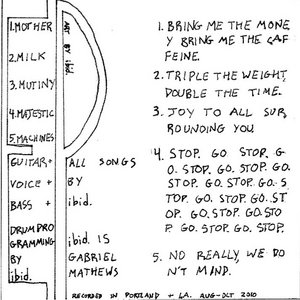 1. MOTHER
2. MILK
3. MUTINY
4. MAJESTIC
5. MACHINES
GUITAR +
VOICE +
BASS +
DRUM PRO
GRAMMING
BY
ibid.
ART BY ibid.
ALL SONGS
BY
ibid.
ibid. IS
GABRIEL
MATHEWS
1. BRING ME THE MONE
Y BRING ME THE CAF
FEINE.
2. TRIPLE THE WEIGHT,
DOUBLE THE TIME.
3. JOY TO ALL SUR
ROUNDING YOU.
4. STOP. GO STOP. G
O. STOP. GO. STOP. GO.
STOP. GO. STOP. GO. S
TOP. GO. STOP. GO. ST
OP. GO. STOP. GO. STO
P. GO. STOP. GO. STOP.
5. NO REALLY, WE DO
N'T MIND.
RECORDED IN PORTLAND + LA. AUG-OCT 2010